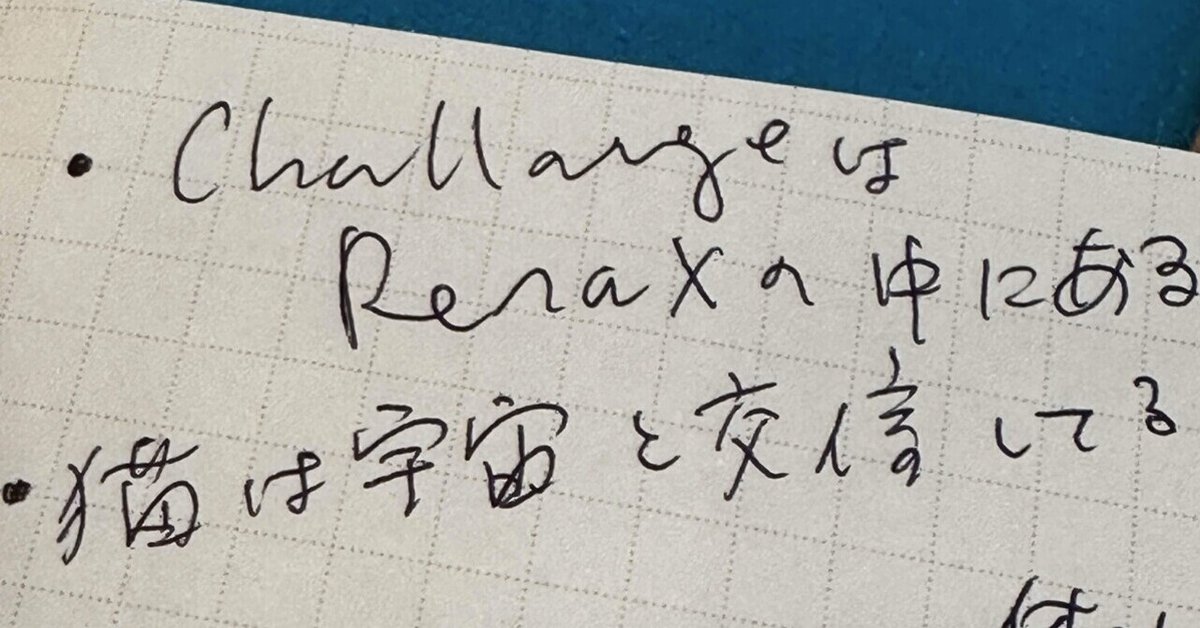 ・Challangeは
Renaxの中にある
・猫は宇宙と交信してる